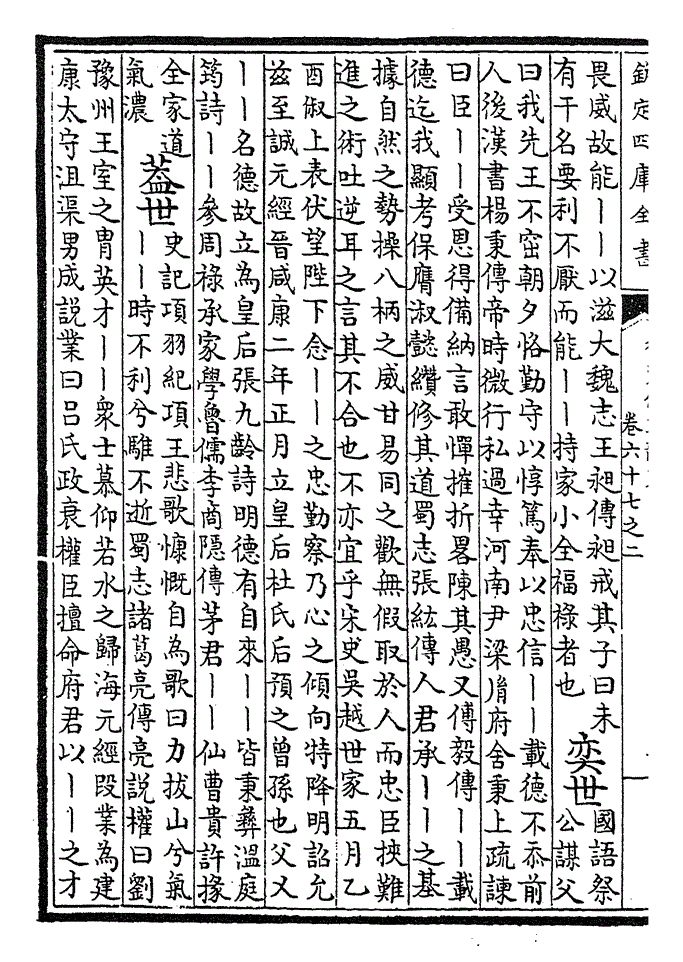 欽定四庫全書
卷六十七之二
畏威故能――以滋大魏志王昶傳昶戒其子曰未
有干名要利不厭而能――持家小全福祿者也
奕世
國語祭
公謀父
曰我先王不窋朝夕恪勤守以惇篤奉以忠信――載德不忝前
人後漢書楊秉傳帝時微行私過幸河南尹梁胤府舍秉上疏諫
曰臣――受恩得備納言敢憚摧折畧陳其愚又傅毅傳――載
德迄我顯考保膺淑懿纘修其道蜀志張紘傳人君承――之基
據自然之勢操八柄之威甘易同之歡無假取於人而忠臣挾難
進之術吐逆耳之言其不合也不亦宜乎宋史吳越世家五月乙
酉俶上表伏望陛下念――之忠勤察乃心之傾向特降明詔允
兹至誠元經晉咸康二年正月立皇后杜氏后預之曾孫也父乂
――名德故立為皇后張九齡詩明德有自來――皆秉彝溫庭
筠詩――參周祿承家學魯儒李商隱傳茅君――仙曹貴許掾
全家道
氣濃
蓋世
史記項羽紀項王悲歌慷慨自為歌曰力拔山兮氣
――時不利兮騅不逝蜀志諸葛亮傳亮說權曰劉
豫州王室之胄英才――衆士慕仰若水之歸海元經段業為建
康太守沮渠男成說業曰呂氏政衰權臣擅命府君以――之才